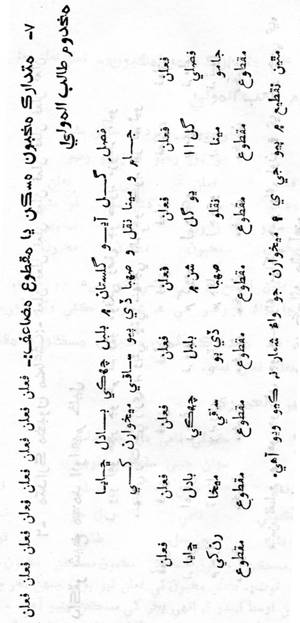 ٧- متدارڪ مخبون مسڪن يا مقطوع مضاعف:- فعلن فعلن فعلن فعلن فعلن فعلن فعلن فعلن
مخدوم طالب المولي!
فصل گل آيو گلستان ۾ بلبل چهڪي بادل ڇايا
جام و مينا نقل و صهبا ڏي ڀو ساقي ميخوارن کي
فعلن فعلن فعلن فعلن فعلن فعلن فعلن فعلن
فصلي گل اا يو گل ستن ۾ بلبل چهڪي بادل ڇايا
جامو مينا نقلو صهبا ڏي ڀو ساقي ميخا رن کي
مقطوع مقطوع مقطوع مقطوع مقطوع مقطوع مقطوع مقطوع
مٿين تقطيع ۾ پيو جي ي ۽ ميخوارن جو واءُ شمار نہ ڪيو ويو آهي.